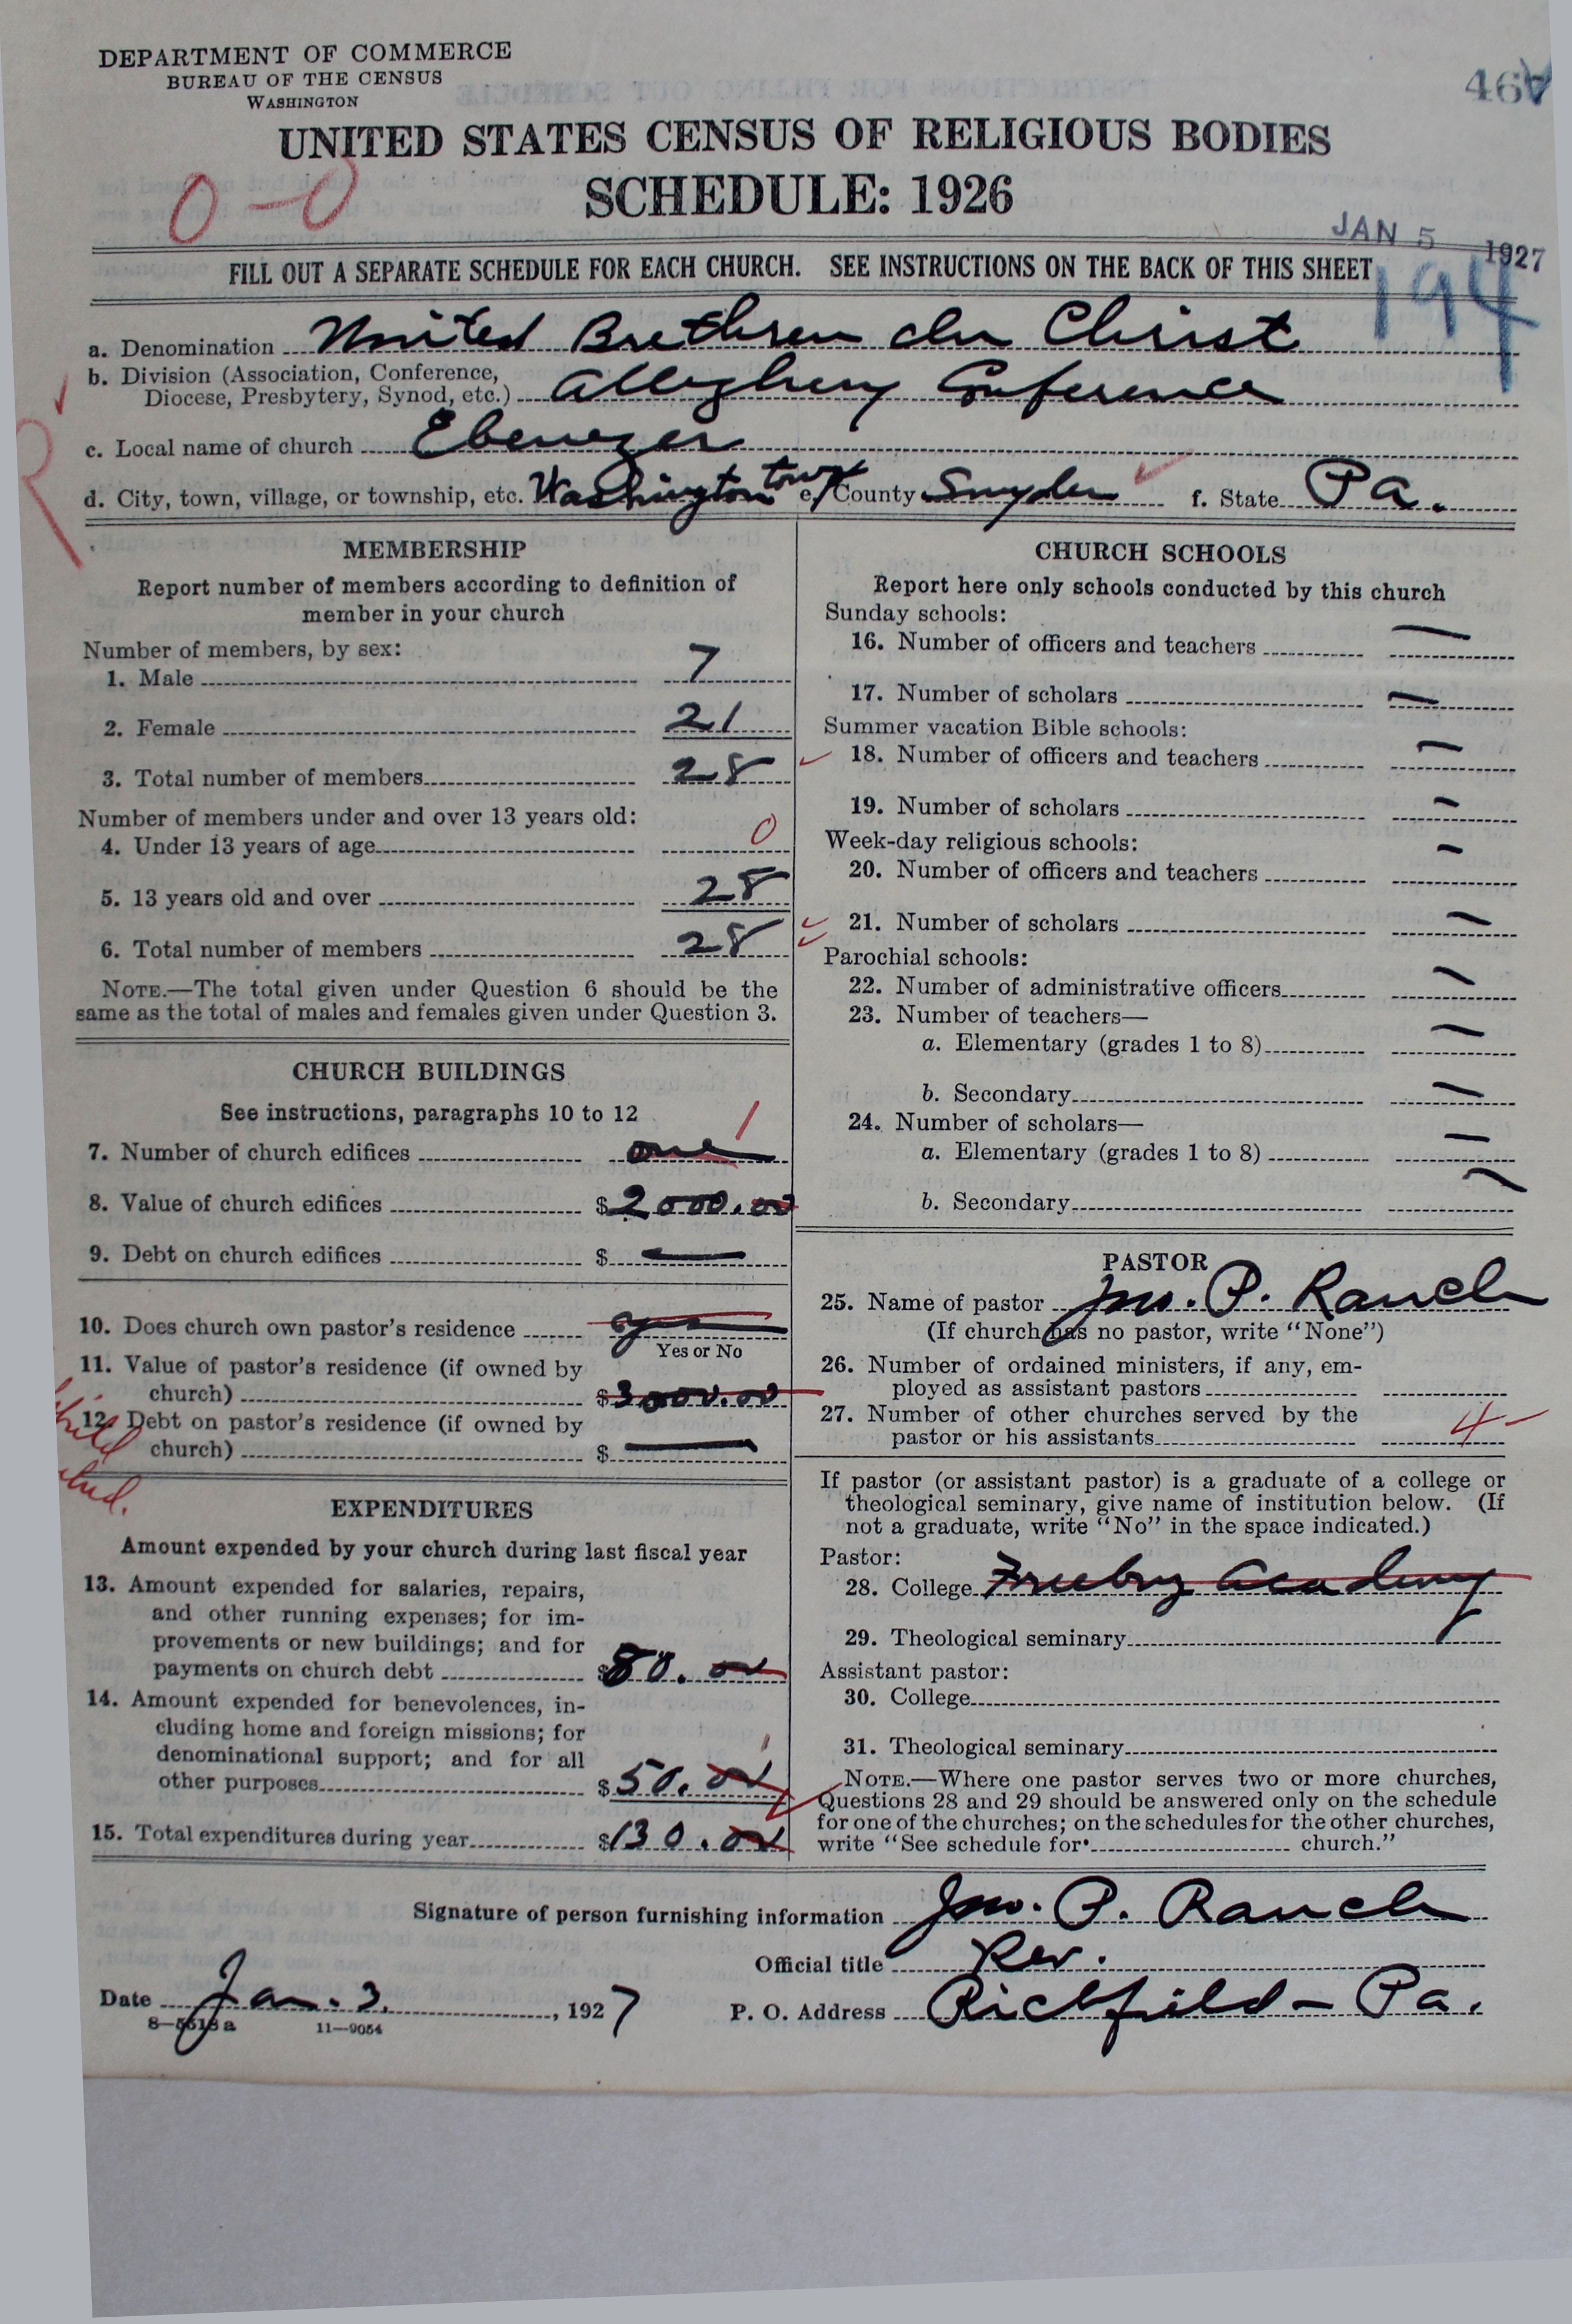 DEPARTMENT OF COMMERCE
BUREAU OF THE CENSUS
WASHINGTON
UNITED STATES CENSUS OF RELIGIOUS BODIES
SCHEDULE: 1926
0-0
JAN 5 1927
194
FILL OUT A SEPARATE SCHEDULE FOR EACH CHURCH. SEE INSTRUCTIONS ON THE BACK OF THIS SHEET
a. Denomination United Brethren in Christ
b. Division (Association, Conference, Diocese, Presbytery, Synod, etc.) Allegheny Conference
c. Local name of church Ebenezer
d. City, town, village, or township, etc. Washington twp e. County Snyder f. State Pa.
MEMBERSHIP
Report number of members according to definition of
member in your church
Number of members, by sex:
1. Male 7
2. Female 21
3. Total number of members 28
Number of members under and over 13 years old:
4. Under 13 years of age 0
5. 13 years old and over 28
6. Total number of members 28
NOTE.—The total given under Question 6 should be the
same as the total of males and females given under Question 3.
CHURCH BUILDINGS
See instructions, paragraphs 10 to 12
7. Number of church edifices one 1
8. Value of church edifices $2000.00
9. Debt on church edifices $ —
10. Does church own pastor's residence yes
Yes or No
11. Value of pastor's residence (if owned by
church) $3000.00
12. Debt on pastor's residence (if owned by
church) $ —
EXPENDITURES
Amount expended by your church during last fiscal year
13. Amount expended for salaries, repairs,
and other running expenses; for im-
provements or new buildings; and for
payments on church debt $80.00
14. Amount expended for benevolences, in-
cluding home and foreign missions; for
denominational support; and for all
other purposes $50.00
15. Total expenditures during year $130.00
CHURCH SCHOOLS
Report here only schools conducted by this church
Sunday schools:
16. Number of officers and teachers —
17. Number of scholars —
Summer vacation Bible schools:
18. Number of officers and teachers —
19. Number of scholars —
Week-day religious schools:
20. Number of officers and teachers —
21. Number of scholars —
Parochial schools:
22. Number of administrative officers —
23. Number of teachers—
a. Elementary (grades 1 to 8) —
b. Secondary —
24. Number of scholars—
a. Elementary (grades 1 to 8) —
b. Secondary —
PASTOR
25. Name of pastor Jno. P. Rauch
(If church has no pastor, write "None")
26. Number of ordained ministers, if any, em-
ployed as assistant pastors
27. Number of other churches served by the
pastor or his assistants 4
If pastor (or assistant pastor) is a graduate of a college or
theological seminary, give name of institution below. (If
not a graduate, write "No" in the space indicated.)
Pastor:
28. College Freeburg Academy
29. Theological seminary
Assistant pastor:
30. College
31. Theological seminary
NOTE.—Where one pastor serves two or more churches,
Questions 28 and 29 should be answered only on the schedule
for one of the churches; on the schedules for the other churches,
write "See schedule for church."
Signature of person furnishing information Jno. P. Rauch
Official title Rev.
Date Jan. 3, 1927 P. O. Address Richfield – Pa.
8—5513a 11—9054